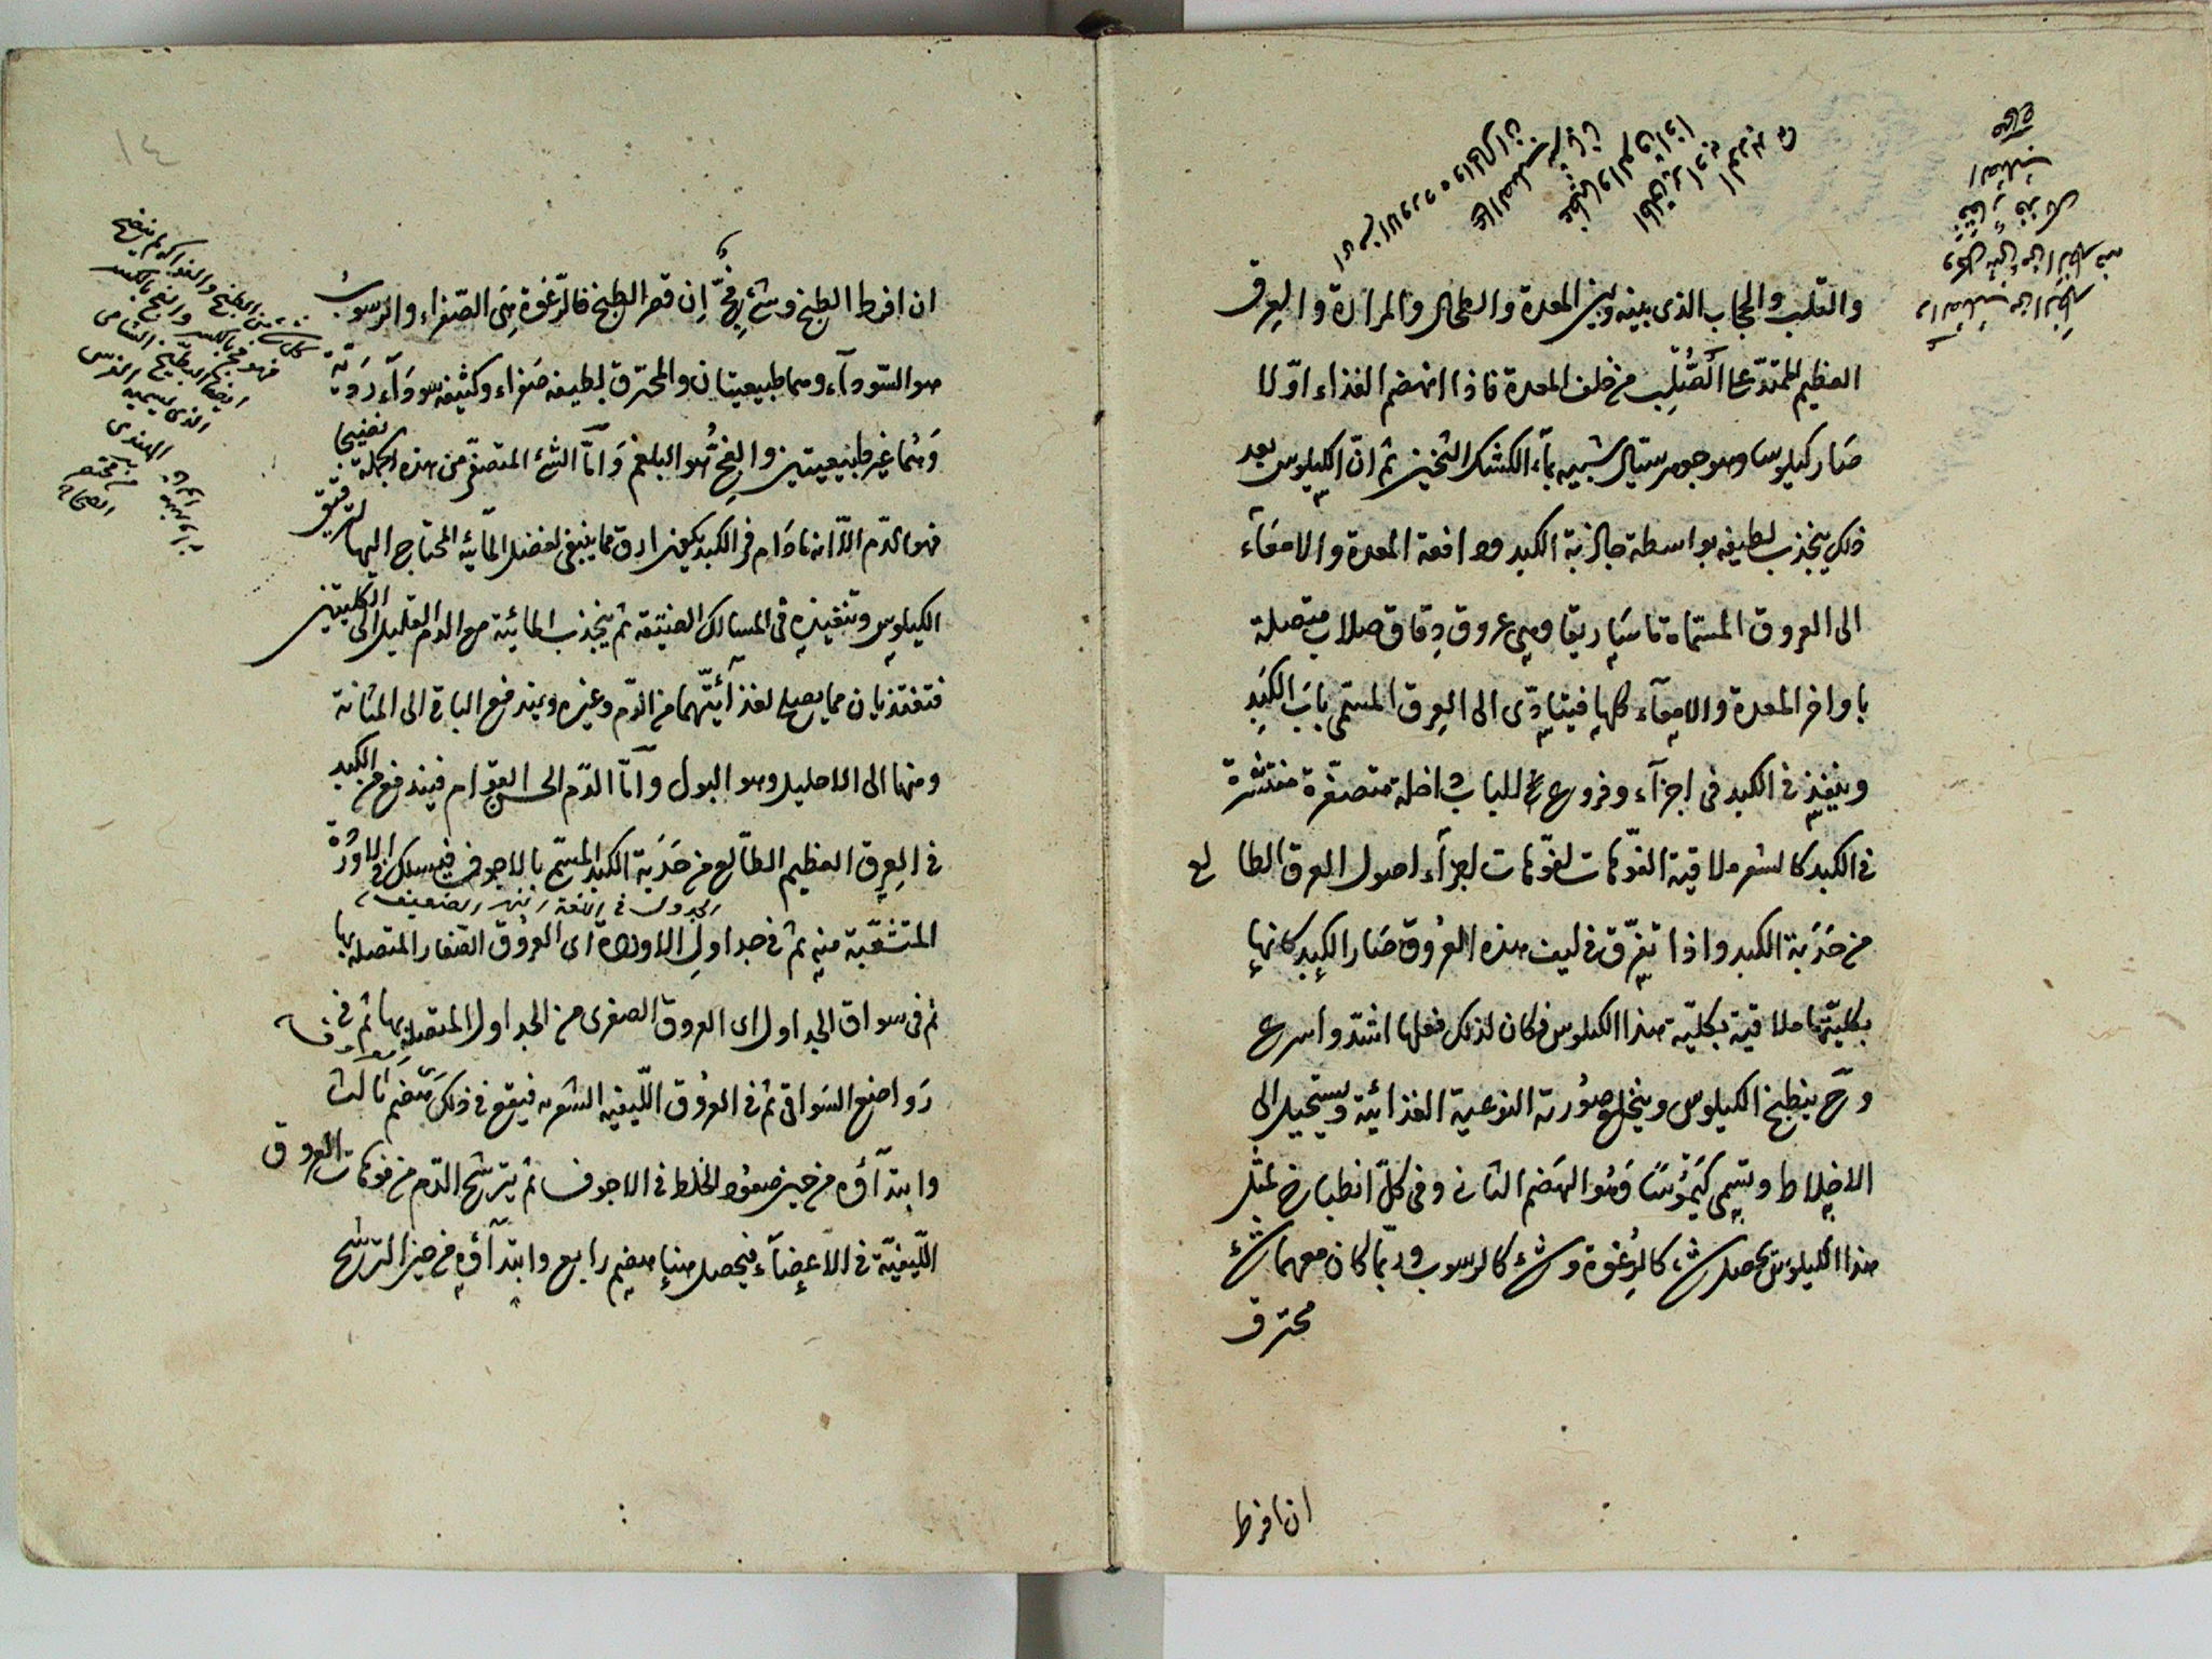 والقلب والحجاب الذى بينه وبين المعدة والطحال والمرارة والعرق
العظيم الممتدّ على الصُّلْبِ من خلف المعدة فاذا انهضم الغذاء اوّلا
صَار كيلوسا وهو جوهر سيّال شبيه بمآء الكشك الثخين ثم انّ الكيلوس بعد
ذلك ينجذب لطيفه بواسطة جاذبة الكبد ودافعة المعدة والامعَآء
الى العروق المسمّاة ماسَاريقا وهى عروق دِقاق صلاب متصلة
باواخر المعدة والامعآء كلها فيتادّى الى العِرق المسمى بابَ الكَبِد
وينفذ فى الكبد فى اجزآء وفروع للباب داخلة متصغّرة منتشرة
فى الكبد كالشعر ملاقية الفوّهات لفوّهات اجزآء اصول العرق الطالع
من حَدَبة الكبد واذا تفرّق فى ليف هذه العرُوق صَار الكبد كانها
بكليّتها ملاقية بكليّة هذا الكيلوس فكان لذلك فعلها اشدّ واسرع
وح ينطبخ الكيلوس وينخلع صُورته النوعية الغذائية ويستحيل الى
الاخلاط وتسمى كَيمُوسًا وَهُو الهَضم الثانى وفى كلّ انطباخ لمثل
هذا الكيلوس يحصل شئ كالرغوة وشئ كالرسوب وربّما كان معهما شئ
محترق
ان افرط
١٤
ان افرط الطبخ وشئ فِجّ إن قصر الطبخ فالرّغوة هِىَ الصّفراء والرّسوبُ
هو السّودآء وهما طبيعيتان والمحترق لطيفه صَفراء وكثيفه سودَآء رديّة
وَهُما غير طبيعيتين والفِجّ هُو البلغم وَامّا الشئ المتصفّى من هذه الجملة نضيجا
فهو الدّم الّا انه مادَام فى الكبد يكون ارق مما ينبغى لفضل المآئية المحتاج اليها لترقيق
الكيلوس وتنفيذه فى المسالك الضيّقة ثم ينجذب المائية مع الدم القليل الى الكليتين
فتغتذيان مما يصلح لغذآئيّتهما من الدّم وغيره ويندفع الباقى الى المثانة
ومنها الى الاحليل وهو البول وَامّا الدّم الحسن القوام فيندفع من الكبد
فى العِرق العظيم الطّالع من حَدَبة الكبد المسمّى بالاجوف فيسلك فى الاورْدة
الجدول فى اللغة النهر الضعيف
المتشعّبة منه ثم فى جداول الاوردة اى العروُق الصّغار المتصلة بها
ثم فى سواقى الجداول اى العروق الصغرى من الجداول المتصلة بها ثم فى
رَواضع السَواقى ثم فى العروُق اللّيفيه الشعريه فيقع فى ذلك هَضم ثالث
وابتدآؤه من حين صعوُد الخلط فى الاجوف ثم يترشّح الدّم من فوهات العروق
اللّيفيّة فى الاَعضَآء فيحصل هنا هضم رابع وابتدآؤه من حين الترشّح